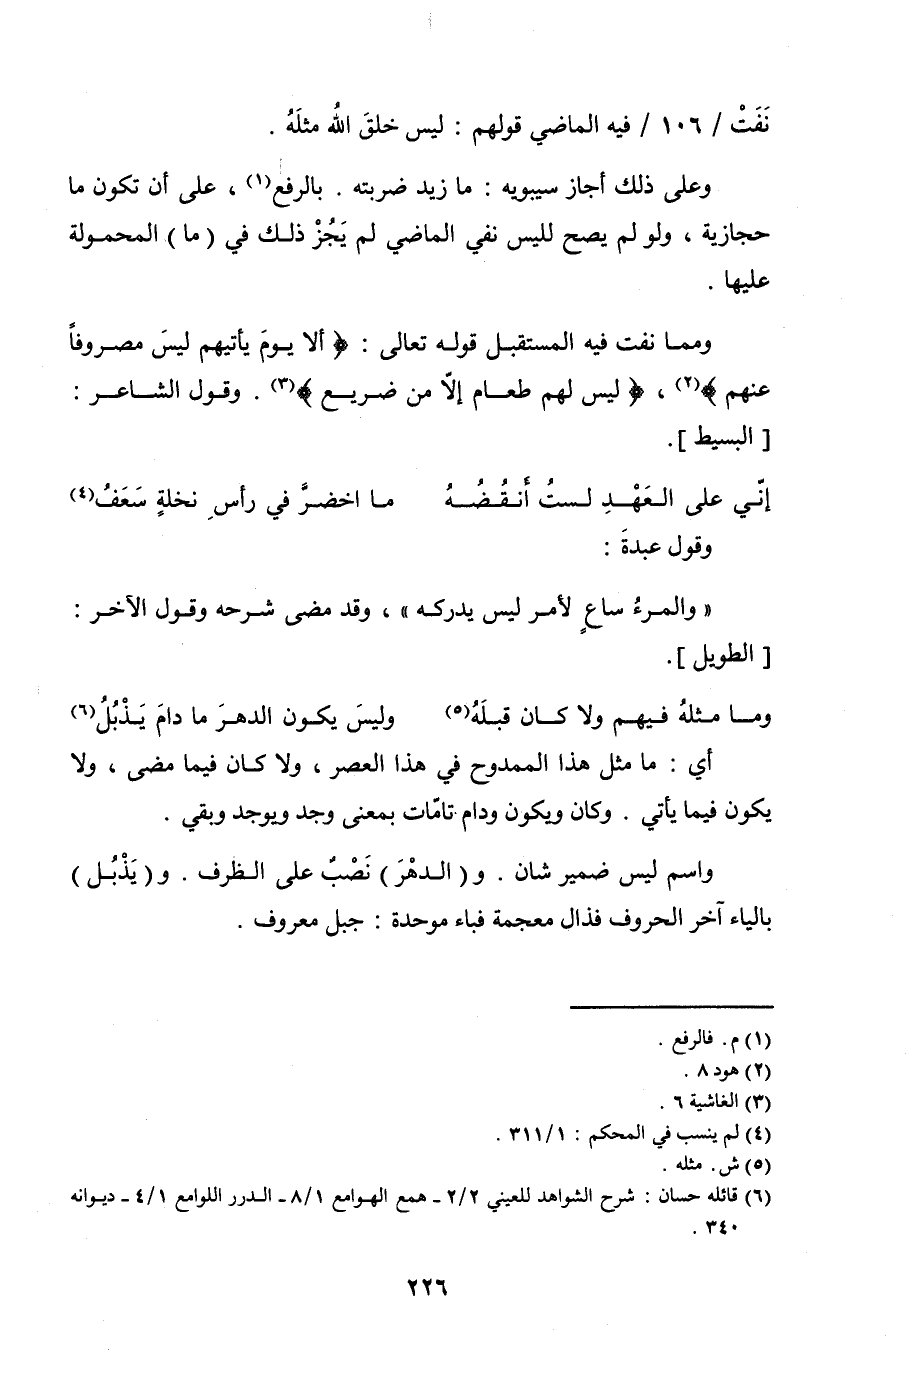 نَفَتْ / ١٠٦ / فيه الماضي قولهم : ليس خلقَ اللهُ مثلَهُ .
وعلى ذلك أجاز سيبويه : ما زيد ضربته . بالرفع(١) ، على أن تكون ما
حجازية ، ولو لم يصح لليس نفي الماضي لم يَجُزْ ذلك في ( ما ) المحمولة
عليها .
ومما نفت فيه المستقبل قوله تعالى : ﴿ ألا يومَ يأتيهم ليسَ مصروفاً
عنهم ﴾(٢) ، ﴿ ليس لهم طعام إلاّ من ضريع ﴾(٣) . وقول الشاعر :
[ البسيط ].
إنّي على العَهْدِ لستُ أَنقُضُهُ ما اخضرَّ في رأسِ نخلةٍ سَعَفُ(٤)
وقول عبدةَ :
« والمرءُ ساعٍ لأمر ليس يدركه » ، وقد مضى شرحه وقول الآخر :
[ الطويل ].
وما مثلهُ فيهم ولا كان قبلَهُ(٥) وليسَ يكون الدهرَ ما دامَ يَذْبُلُ(٦)
أي : ما مثل هذا الممدوح في هذا العصر ، ولا كان فيما مضى ، ولا
يكون فيما يأتي . وكان ويكون ودام تامّات بمعنى وجد ويوجد وبقي .
واسم ليس ضمير شان . و( الدهْرَ ) نَصْبٌ على الظرف . و( يَذْبُل )
بالياء آخر الحروف فذال معجمة فباء موحدة : جبل معروف .
(١) م. فالرفع .
(٢) هود ٨ .
(٣) الغاشية ٦ .
(٤) لم ينسب في المحكم : ٣١١/١ .
(٥) ش. مثله .
(٦) قائله حسان : شرح الشواهد للعيني ٢/٢ ـ همع الهوامع ٨/١ ـ الدرر اللوامع ٤/١ ـ ديوانه
٣٤٠ .
٢٢٦